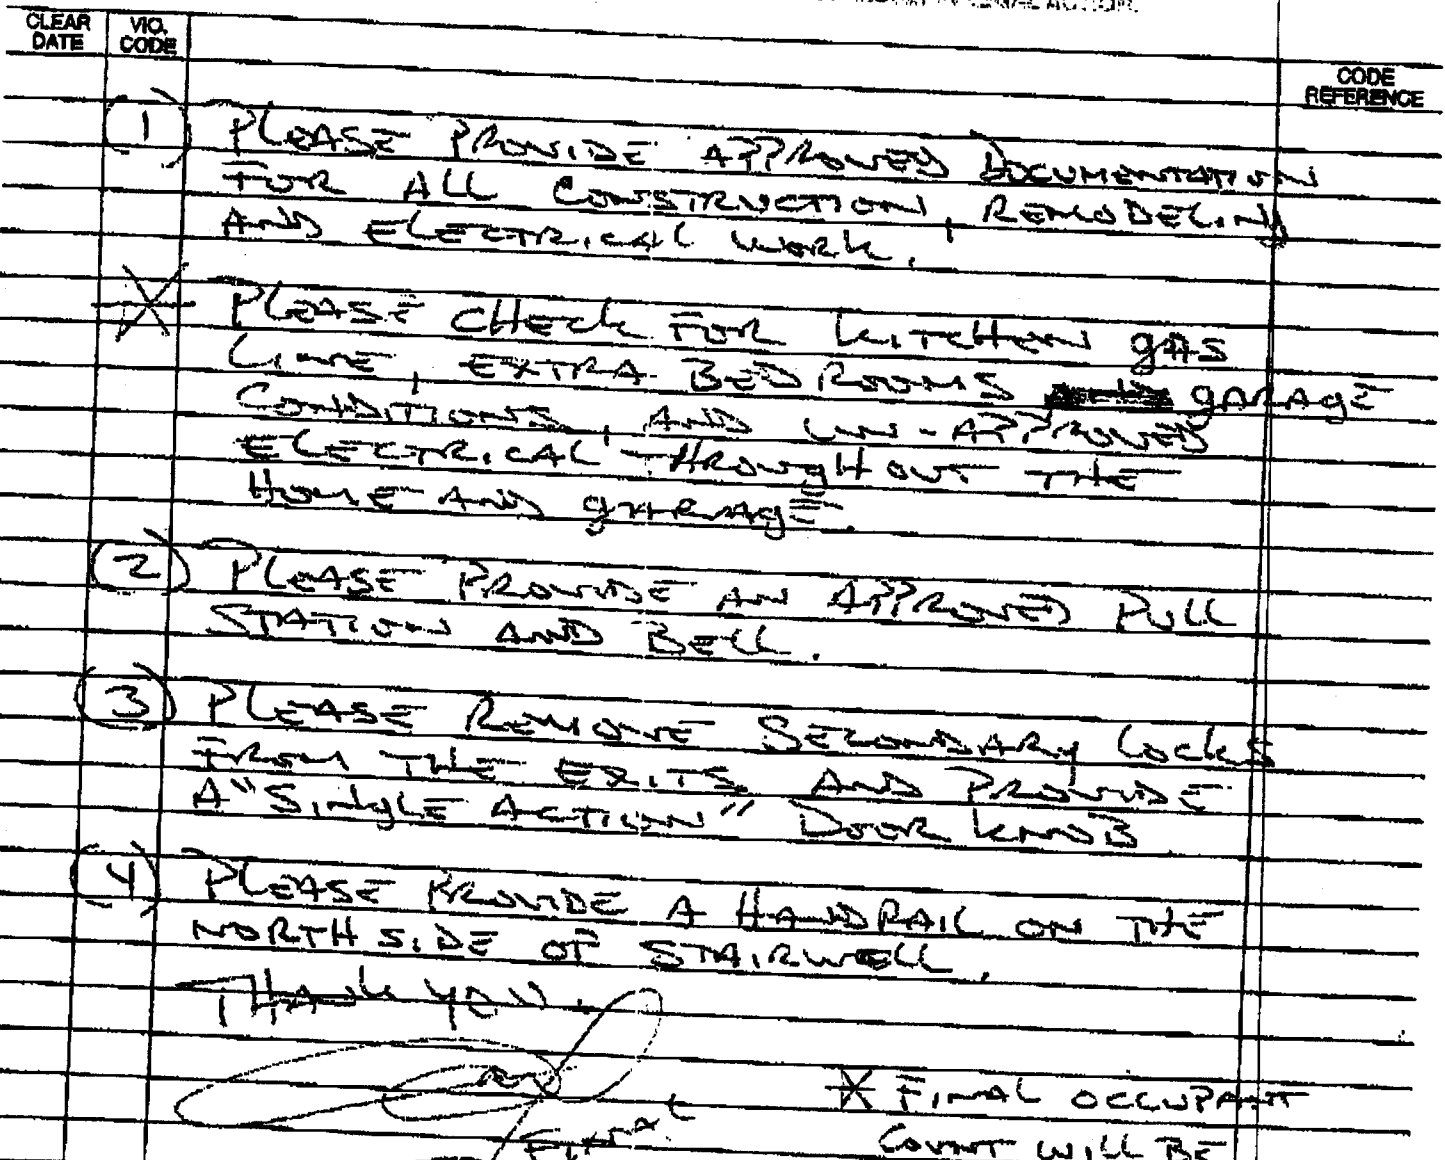 CLEAR DATE
VIO. CODE
CODE REFERENCE
(1) PLEASE PROVIDE APPROVED DOCUMENTATION
FOR ALL CONSTRUCTION, REMODELING
AND ELECTRICAL WORK.
* PLEASE CHECK FOR KITCHEN GAS
LINE, EXTRA BEDROOMS GARAGE
CONDITIONS, AND UN-APPROVED
ELECTRICAL THROUGHOUT THE
HOME AND GARAGE.
(2) PLEASE PROVIDE AN APPROVED PULL
STATION AND BELL.
(3) PLEASE REMOVE SECONDARY LOCKS
FROM THE EXITS AND PROVIDE
A "SINGLE ACTION" DOOR KNOB
(4) PLEASE PROVIDE A HANDRAIL ON THE
NORTH SIDE OF STAIRWELL.
THANK YOU.
* FINAL OCCUPANT
COUNT WILL BE